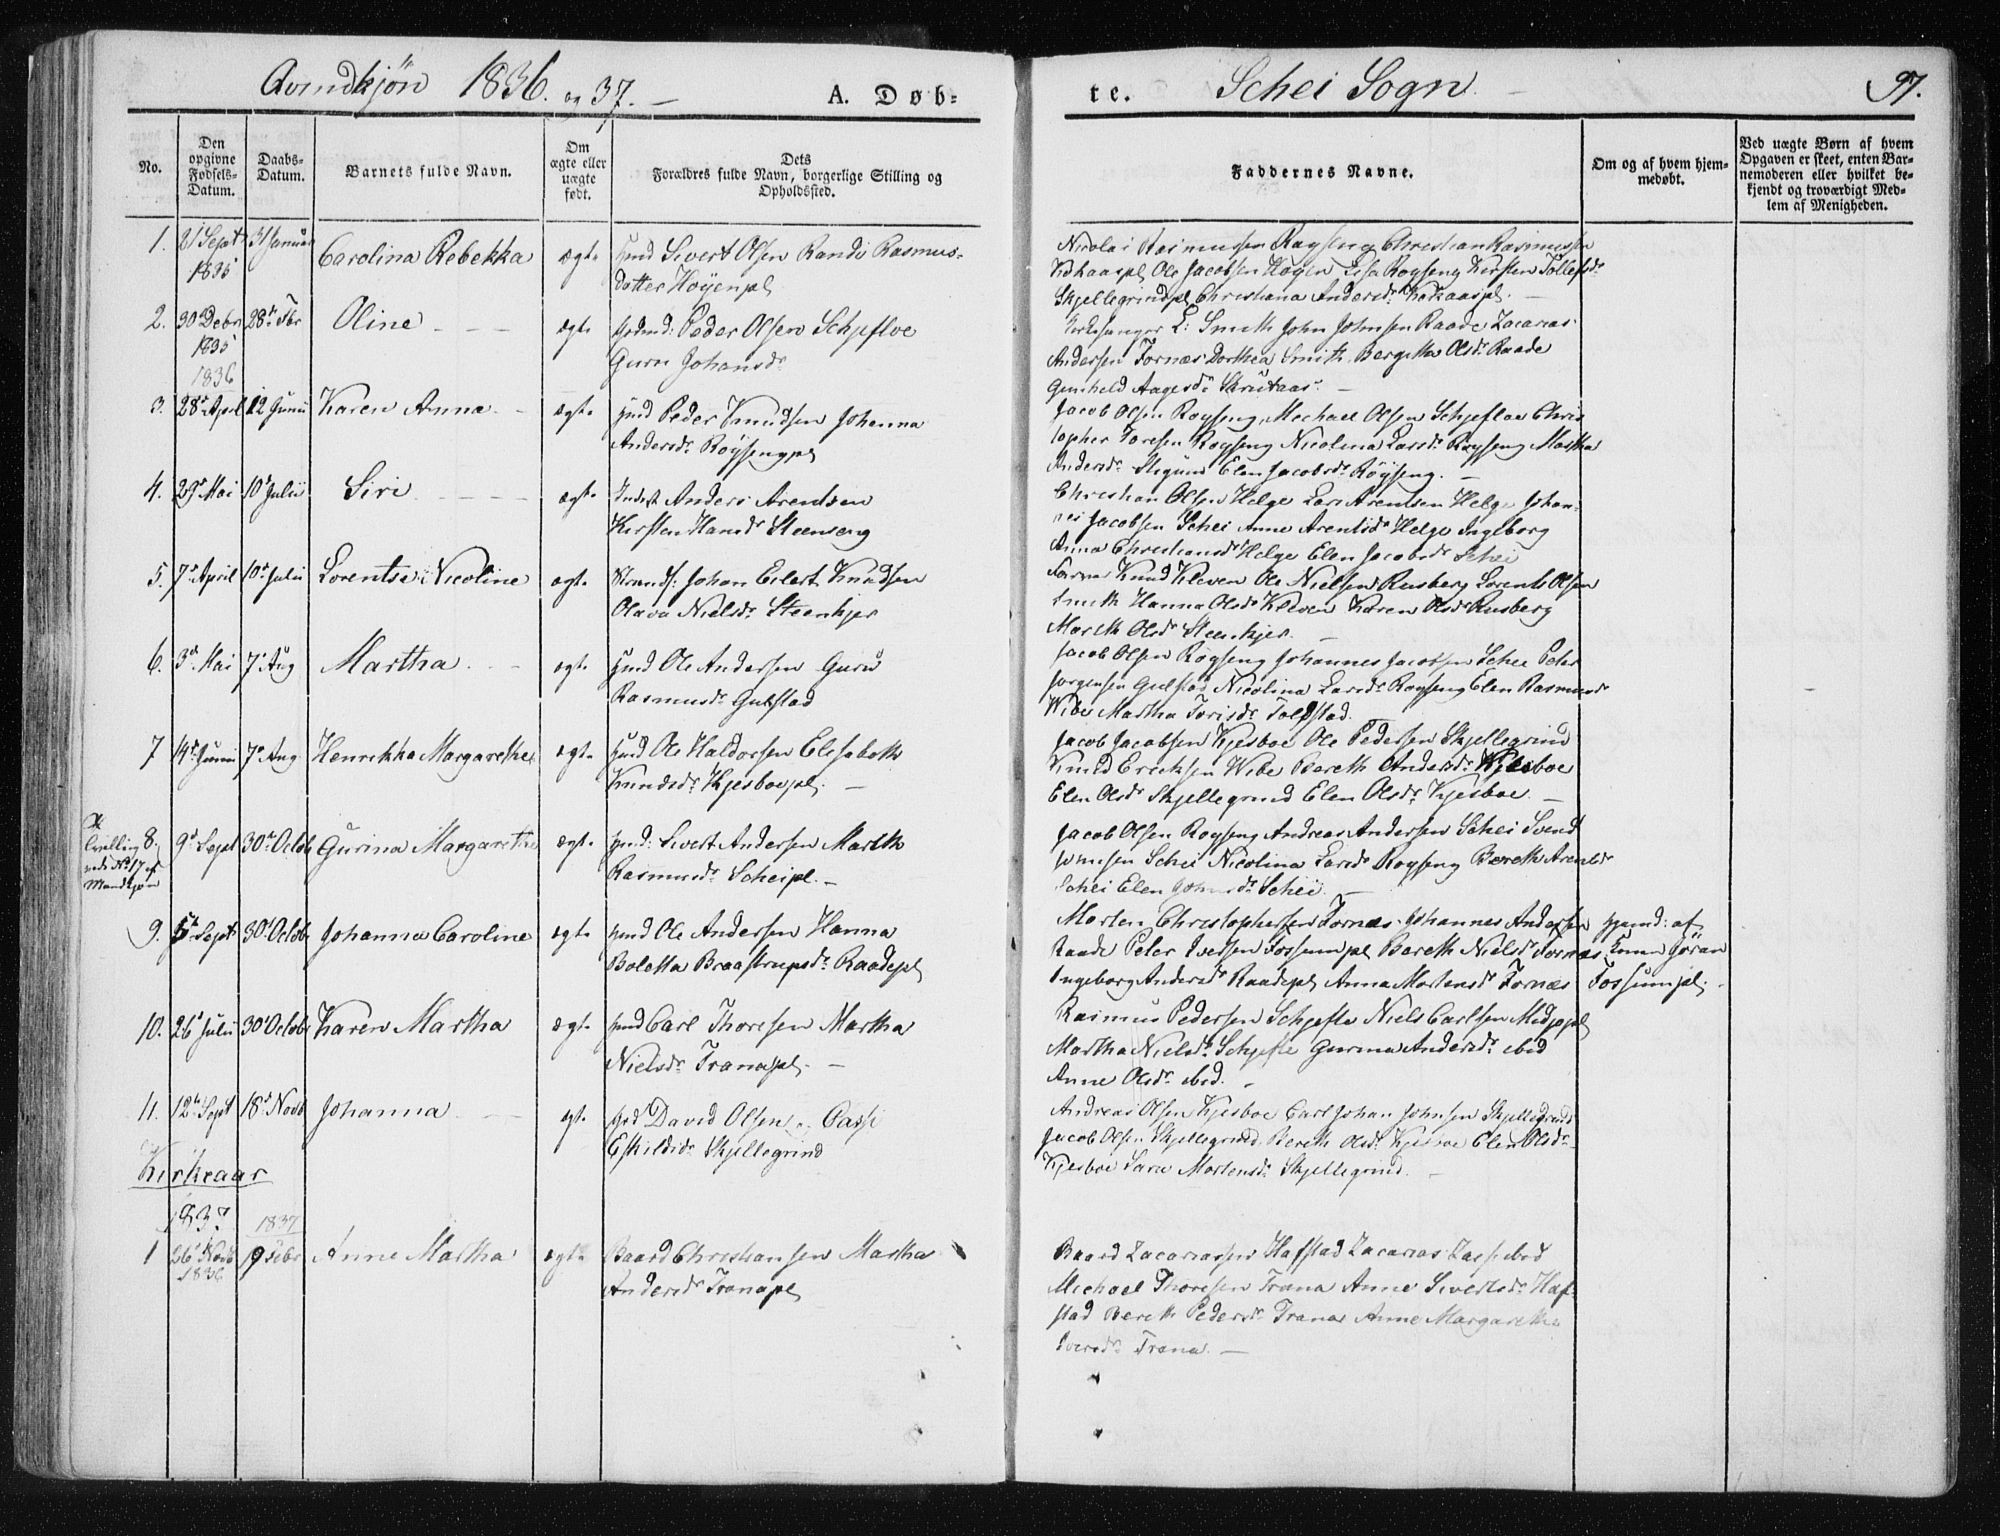 Qvindkjön 1836. og 37. —
A. Døb-
te. Schei Sogn. —
97.
No.
Den opgivne Fødsels-Datum.
Daabs-Datum.
Barnets fulde Navn.
Om ægte eller uægte født.
Dets Forældres fulde Navn, borgerlige Stilling og Opholdssted.
Faddernes Navne.
Om og af hvem hjem-medøbt.
Ved uægte Børn af hvem Opgaven er skeet, enten Bar-nemoderen eller hvilket be-kjendt og troværdigt Med-lem af Menigheden.
1. 21 Sept 31 Januar Carolina Rebekka ægte Hmd Sivert Olsen Randi Rasmus-
1835 datter Höyenpl
Nicolai Rasmussen Röyseng Christian Rasmussen
Ole Jacobsen Höyen Lisa Röyseng Kirsten Tollefsdr
Skjellegrindpl Christiana Andersdr
2. 30 Debr 28de Fbr Oline ægte Peder Olsen Schjefloe
1835 Guru Johansdr
Kirkesanger L: Smith John Johnsen Raade Zacarias
Andersen Fornæs Dorthea Smith Bergitha Olsdr Raade
Gunhild Aagesdr
1836
3. 28de April 12 Junii Karen Anna ægte Hmd Peder Knudsen Johanna
Andersdr Röysengpl
Jacob Olsen Röyseng, Michael Olsen Schjefloe Chris
topher Toresen Röyseng Nicolina Larsdr Röyseng Martha
Andersdr Elen Jacobsdr Röyseng. —
4. 29de Mai 10de Julii Siri ægte Inderst Anders Arentsen
Kirsten Hansdr Steenseng
Christian Olsen Helge Lars Arentsen Helge Johan-
nes Jacobsen Schei Anne Arentsdr Helge Ingeborg
Anna Christiansdr Helge Elen Jacobsdr Schei
5. 7de April 10de Julii Lorentse Nicoline ægte Strands: Johan Eilert Knudsen
Olava Nielsdr Steenkjer
Knud Kleven Ole Nielsen Rusberg Lorents Olsen
Smith Hanna Olsdr Kleven Karen Olsdr Rusberg
Mareth Olsdr Steenkjer. —
6. 3de Mai 7de Aug Martha ægte Hmd Ole Andersen Guru
Rasmusdr Gulstad
Jacob Olsen Röyseng Johannes Jacobsen Schei Peter
Jörgensen Gulstad Nicolina Larsdr Röyseng Elen Rasmusdr
Wibe Martha Torisdr
7 14de Junii 7de Aug Henrikka Margarethe ægte Hmd Ole Haldorsen Elisabeth
Knudsdr Kjesboepl. —
Jacob Jacobsen Kjesboe Ole Pedersen Skjellegrind
Knud Ericksen Wibe Bereth Andersdr Kjesboe
Elen Olsdr Skjellegrind Elen Olsdr Kjesboe. —
Tvilling
med No 17 af
Mandkjøn
8. 9de Sept 30te Octob Gurina Margarethe ægte Hmd: Sivert Andersen Mareth
Rasmusdr Scheipl. —
Jacob Olsen Röyseng Andreas Andersen Schei Svend
Jonsen Schei Nicolina Larsdr Röyseng Bereth Arentsdr
Schei Elen Johnsdr Schei. —
9. 5te Sept 30te Octob Johanna Caroline ægte Hmd Ole Andersen Hanna
Boletta Braastrupsdr Raadepl
Morten Christophersen Fornæs Johannes Andersen
Raade Peter Iversen Fossumpl Bereth Nielsdr Fornæs
Ingeborg Andersdr Raadepl Anna Mortensdr Fornæs
Hjemd: af
Enne Göran
Fossumpl.
10. 26de Julii 30te Octob Karen Martha ægte Hmd Carl Thoresen Martha
Nielsdr Tranapl. —
Rasmus Pedersen Schjefte Niels Carlsen
Martha Nielsdr Schjefte Gurina Andersdr ibid
Anne Olsdr ibid. —
11. 12te Sept 18de Novb Johanna ægte David Olsen
Eskildsdr Skjellegrind
Andreas Olsen Kjesboe Carl Johan Johnsen Skjellegrind
Jacob Olsen Skjellegrind Bereth Olsdr Kjesboe Elen Olsdr
Kjesboe Sara Mortensdr Skjellegrind. —
Kirkeaar
1837 1837
1 26de Novb 19 Febr Anne Martha ægte Baard Christiansen Martha
1836 Andersdr Tranapl
Baard Zacariassen Hafstad Zacarias ibid
Michael Thoresen Trana Anne Sivertsdr Haf-
stad Bereth Pedersdr Trana Anne Margarethe
Iversdr Trana. —